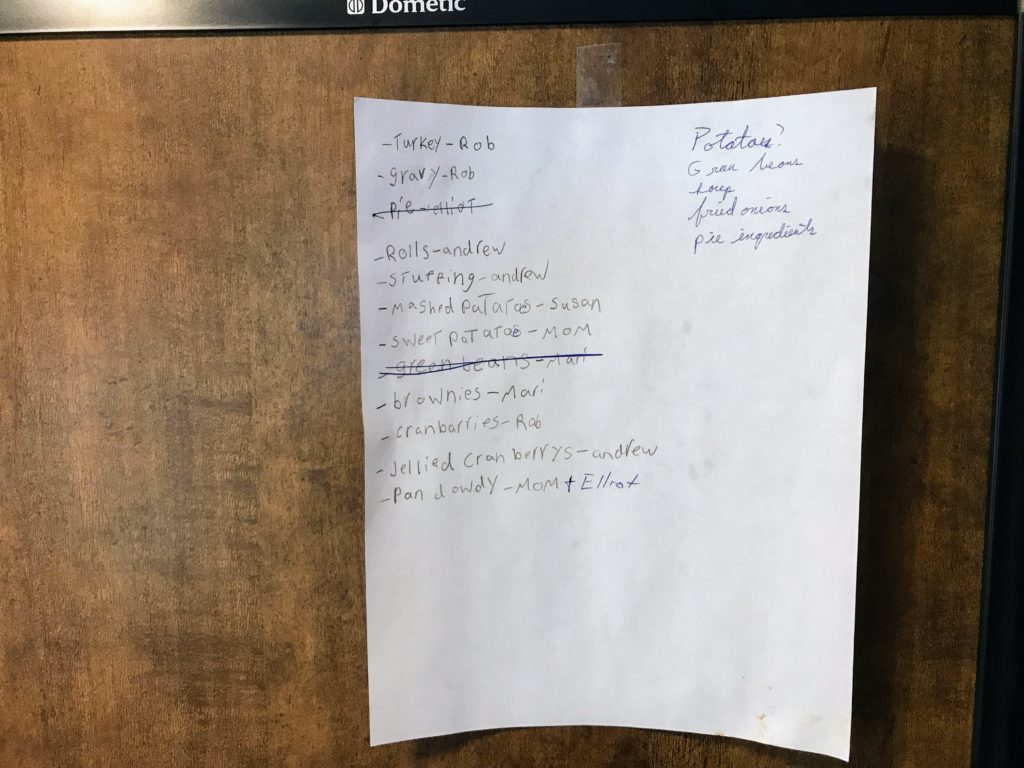 Dometic
-Turkey-Rob
-gravy-Rob
-pie-elliot
-Rolls-andrew
-sTuffing-andrew
-mashed paTaTos-Susan
-sweeT poTaTos-MOM
-green beans-Mari
-brownies-Mari
-cranbarries-Rob
-Jellied Cranberrys-andrew
-Pan dowdy-MOM + Elliot
Potatoes?
Green beans
fried onions
pie ingredients